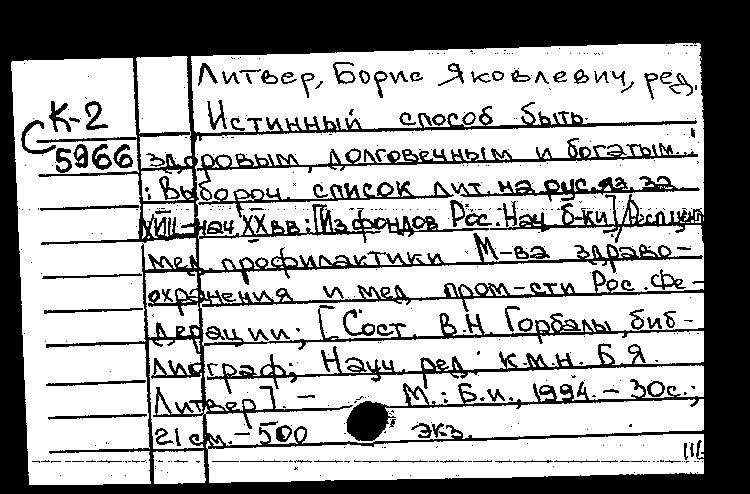 Литвер, Борис Яковлевич, ред.
К-2
С
5966
Истинный способ быть
здоровым, долговечным и богатым..."
: Выбороч. список лит. на рус. яз. за
XVIII-нач. XX вв.: [Из фондов Рос. Нац. б-ки] / Респ. центр
мед. профилактики М-ва здраво-
охранения и мед. пром-сти Рос. Фе-
дерации; [Сост. В.Н. Горбалы, биб-
лиограф; Науч. ред. к.м.н. Б.Я.
Литвер]. - М.: Б.и., 1994. - 30с.;
21 см. - 500 экз.